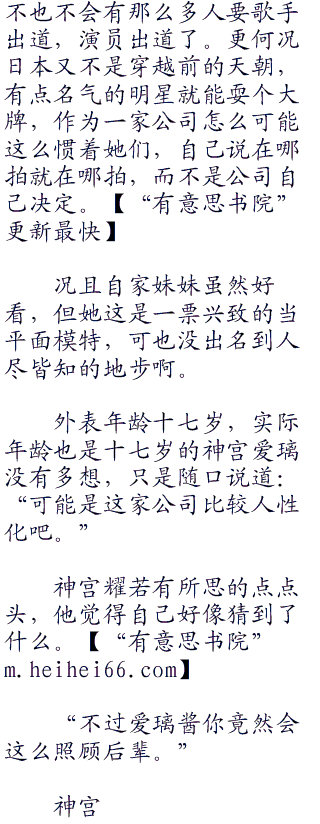 不也不会有那么多人要歌手
出道，演员出道了。更何况
日本又不是穿越前的天朝，
有点名气的明星就能耍个大
牌，作为一家公司怎么可能
这么惯着她们，自己说在哪
拍就在哪拍，而不是公司自
己决定。【“有意思书院”
更新最快】
况且自家妹妹虽然好
看，但她这是一票兴致的当
平面模特，可也没出名到人
尽皆知的地步啊。
外表年龄十七岁，实际
年龄也是十七岁的神宫爱璃
没有多想，只是随口说道：
“可能是这家公司比较人性
化吧。”
神宫耀若有所思的点点
头，他觉得自己好像猜到了
什么。【“有意思书院”
m.heihei66.com】
“不过爱璃酱你竟然会
这么照顾后辈。”
神宫